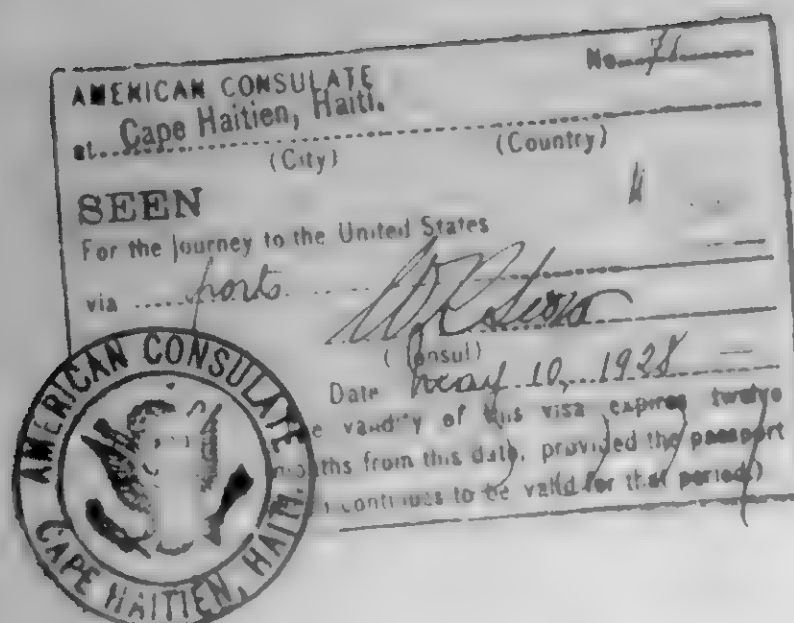 AMERICAN CONSULATE No.
at Cape Haitien, Haiti.
(City) (Country)
SEEN
For the journey to the United States
via ports
(Consul)
Date May 10, 1928
e validity of this visa expires twelve
months from this date, provided the passport
continues to be valid for that period)
AMERICAN CONSULATE
CAPE HAITIEN, HAITI.